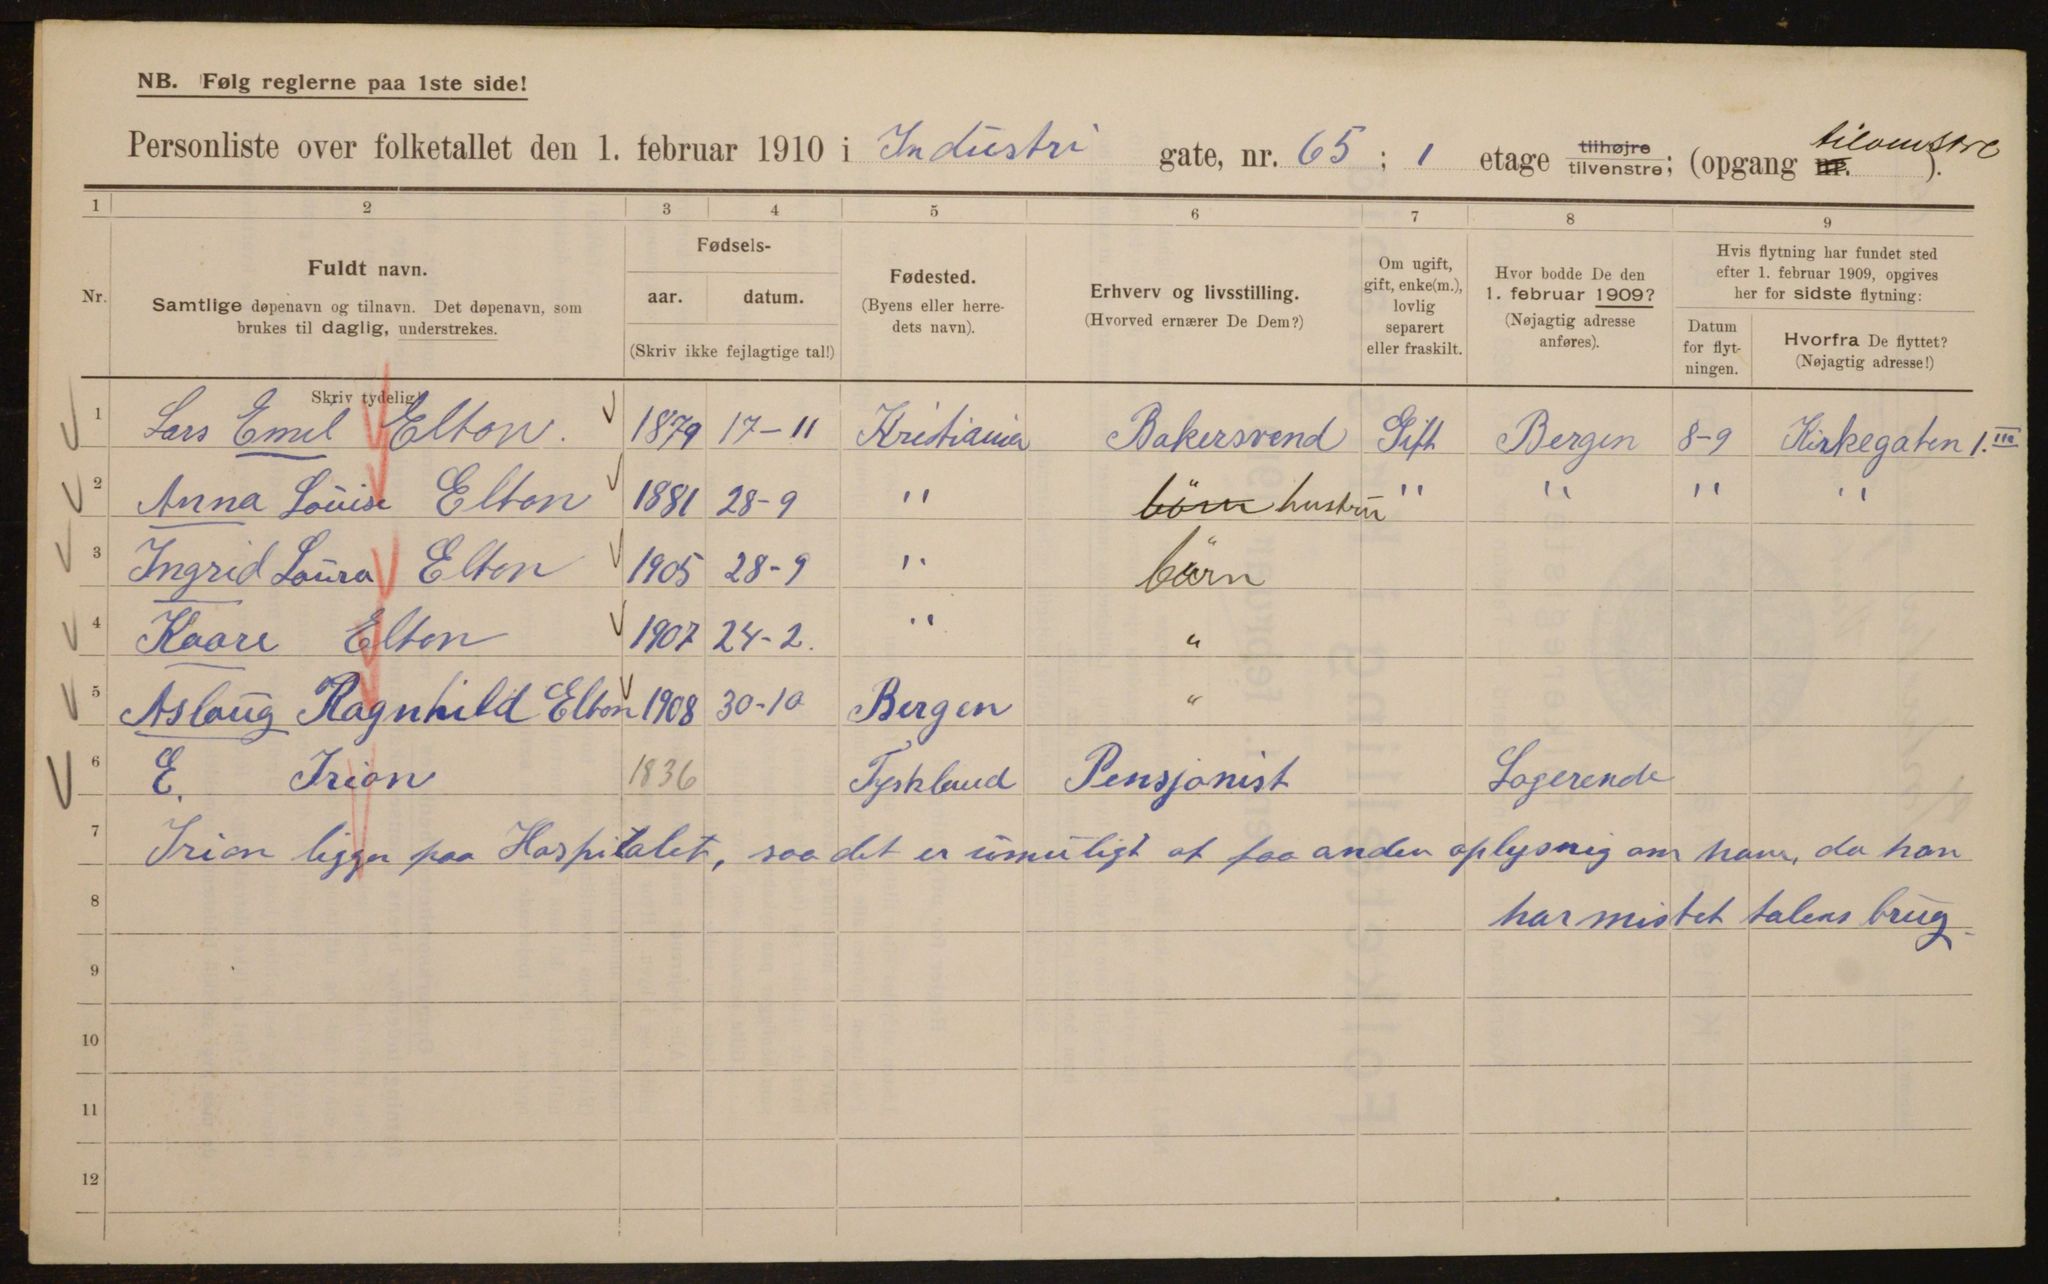 NB. Følg reglerne paa 1ste side!
Personliste over folketallet den 1. februar 1910 i Industri gate, nr. 65 ; 1 etage tilhøjre tilvenstre; (opgang nr. tilvenstre ).
1 2 3 4 5 6 7 8 9
Nr.
Fuldt navn.
Samtlige døpenavn og tilnavn. Det døpenavn, som
brukes til daglig, understrekes.
Fødsels-
aar. datum.
(Skriv ikke fejlagtige tal!)
Fødested.
(Byens eller herre-
dets navn).
Erhverv og livsstilling.
(Hvorved ernærer De Dem?)
Om ugift,
gift, enke(m.),
lovlig
separert
eller fraskilt.
Hvor bodde De den
1. februar 1909?
(Nøjagtig adresse
anføres).
Hvis flytning har fundet sted
efter 1. februar 1909, opgives
her for sidste flytning:
Datum
for flyt-
ningen.
Hvorfra De flyttet?
(Nøjagtig adresse!)
Skriv tydelig!
1 Lars Emil Elton. 1879 17-11 Kristiania Bakersvend Gift Bergen 8-9 Kirkegaten 1. III
2 Anna Louise Elton 1881 28-9 " börn hustru " " " "
3 Ingrid Laura Elton 1905 28-9 " börn
4 Kaare Elton 1907 24-2. " "
5 Aslaug Ragnhild Elton 1908 30-10 Bergen "
6 E. Irion 1836 Tyskland Pensjonist Logerende
7 Irion ligger paa Hospitalet, saa det er umuligt at faa anden oplysnig om ham, da han
8 har mistet talens brug.
9
10
11
12